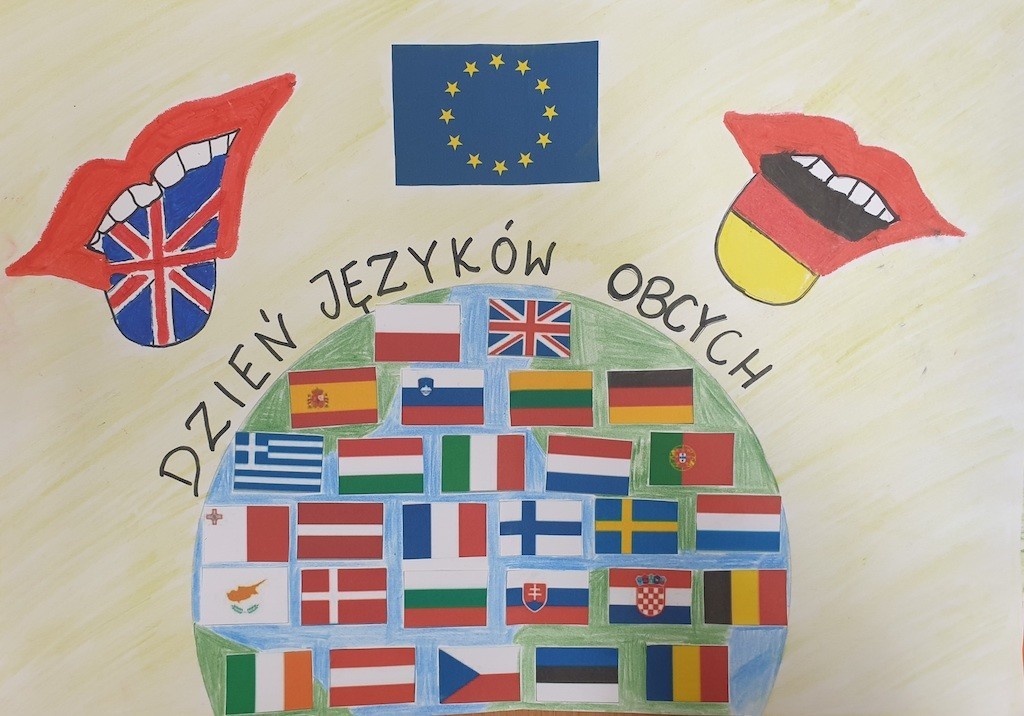 DZIEŃ JĘZYKÓW OBCYCH